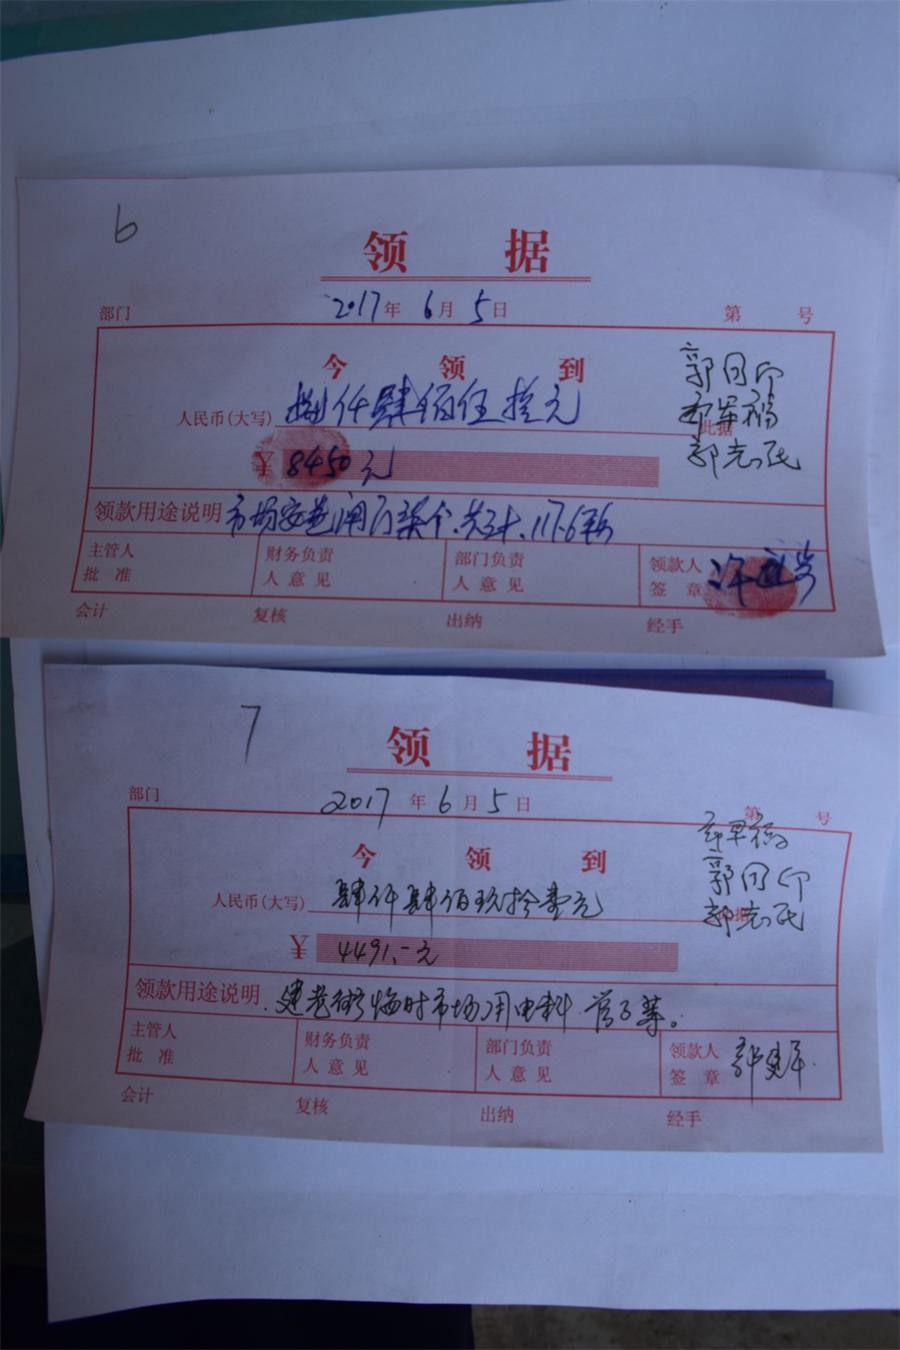 6
领 据
部门 2017年 6月 5日 第 号
今 领 到
郭同印
人民币(大写) 捌仟肆佰伍拾元
此据
郭志民
¥ 8450元
领款用途说明 市场安装闸门柒个.共计.117.6
主管人 批准 财务负责人意见 部门负责人意见 领款人签章
会计 复核 出纳 经手
7
领 据
部门 2017年 6月 5日 第 号
今 领 到
郭同印
人民币(大写) 肆仟肆佰玖拾壹元
郭志民
¥ 4491.-元
领款用途说明 建老街临时市场用电料 管子等。
主管人 批准 财务负责人意见 部门负责人意见 领款人签章 郭建军
会计 复核 出纳 经手